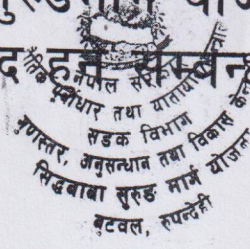 नेपाल सरकार
भौतिक पूर्वाधार तथा यातायात
सडक विभाग
गुणस्तर, अनुसन्धान तथा विकास केन्द्र
सिद्धबाबा सुरुङ मार्ग योजना
बुटवल, रुपन्देही